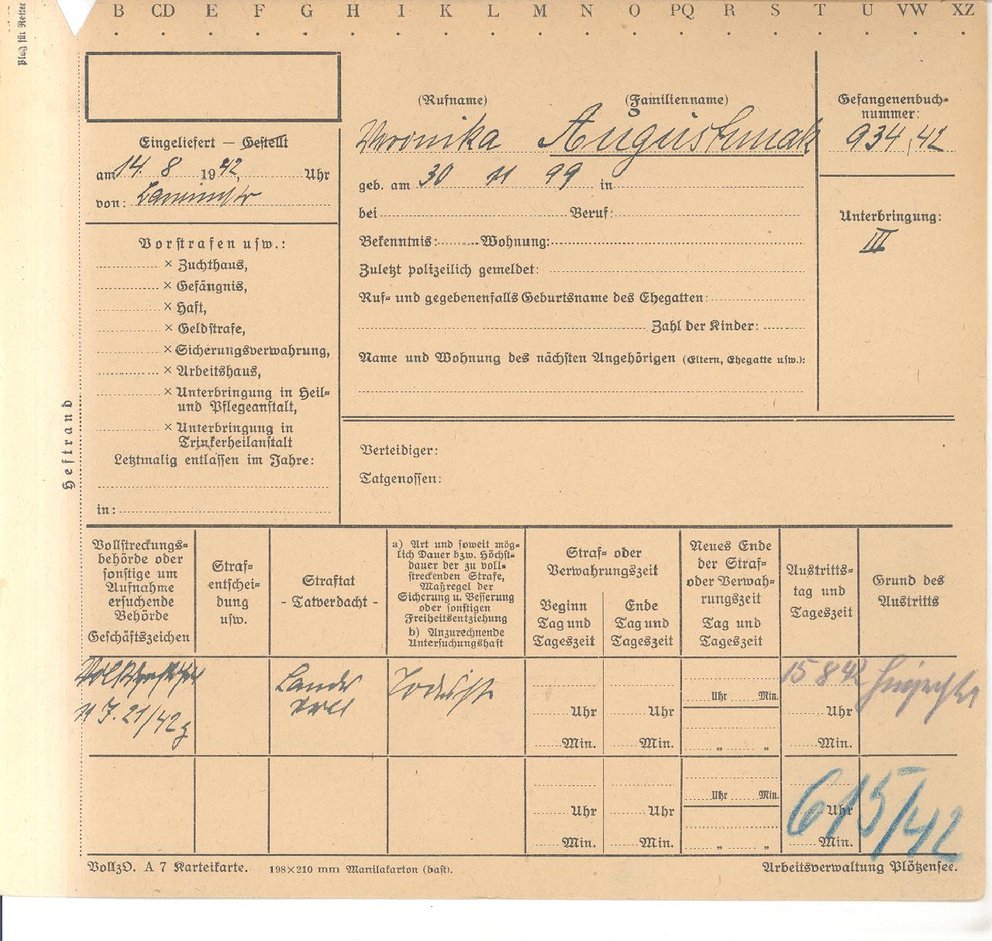 B CD E F G H I K L M N O PQ R S T U VW XZ
Platz für Reiter
(Rufname) (Familienname)
Veronika Augustyniak
Gefangenenbuch-
nummer:
934/42
Eingeliefert — Gestellt
am 14. 8 1942, Uhr
von:
geb. am 30 11 99 in
bei Beruf:
Bekenntnis: Wohnung:
Zuletzt polizeilich gemeldet:
Ruf- und gegebenenfalls Geburtsname des Ehegatten:
Zahl der Kinder:
Name und Wohnung des nächsten Angehörigen (Eltern, Ehegatte usw.):
Unterbringung:
III
Vorstrafen usw.:
× Zuchthaus,
× Gefängnis,
× Haft,
× Geldstrafe,
× Sicherungsverwahrung,
× Arbeitshaus,
× Unterbringung in Heil-
und Pflegeanstalt,
× Unterbringung in
Trinkerheilanstalt
Letztmalig entlassen im Jahre:
in:
Heftrand
Verteidiger:
Tatgenossen:
Vollstreckungs-
behörde oder
sonstige um
Aufnahme
ersuchende
Behörde
Geschäftszeichen
Straf-
entschei-
dung
usw.
Straftat
- Tatverdacht -
a) Art und soweit mög-
lich Dauer bzw. Höchst-
dauer der zu voll-
streckenden Strafe,
Maßregel der
Sicherung u. Besserung
oder sonstigen
Freiheitsentziehung
b) Anzurechnende
Untersuchungshaft
Straf- oder
Verwahrungszeit
Beginn
Tag und
Tageszeit
Ende
Tag und
Tageszeit
Neues Ende
der Straf-
oder Verwah-
rungszeit
Tag und
Tageszeit
Austritts-
tag und
Tageszeit
Grund des
Austritts
11 J. 21/42g
Landes
verr
Todesst
Uhr
Min.
Uhr
Min.
Uhr Min.
" "
15 8 42
Uhr
Min.
Hingerichtet
Uhr
Min.
Uhr
Min.
Uhr Min.
" "
Uhr
Min.
615/42
VollzO. A 7 Karteikarte. 198×210 mm Manilakarton (bast).
Arbeitsverwaltung Plötzensee.